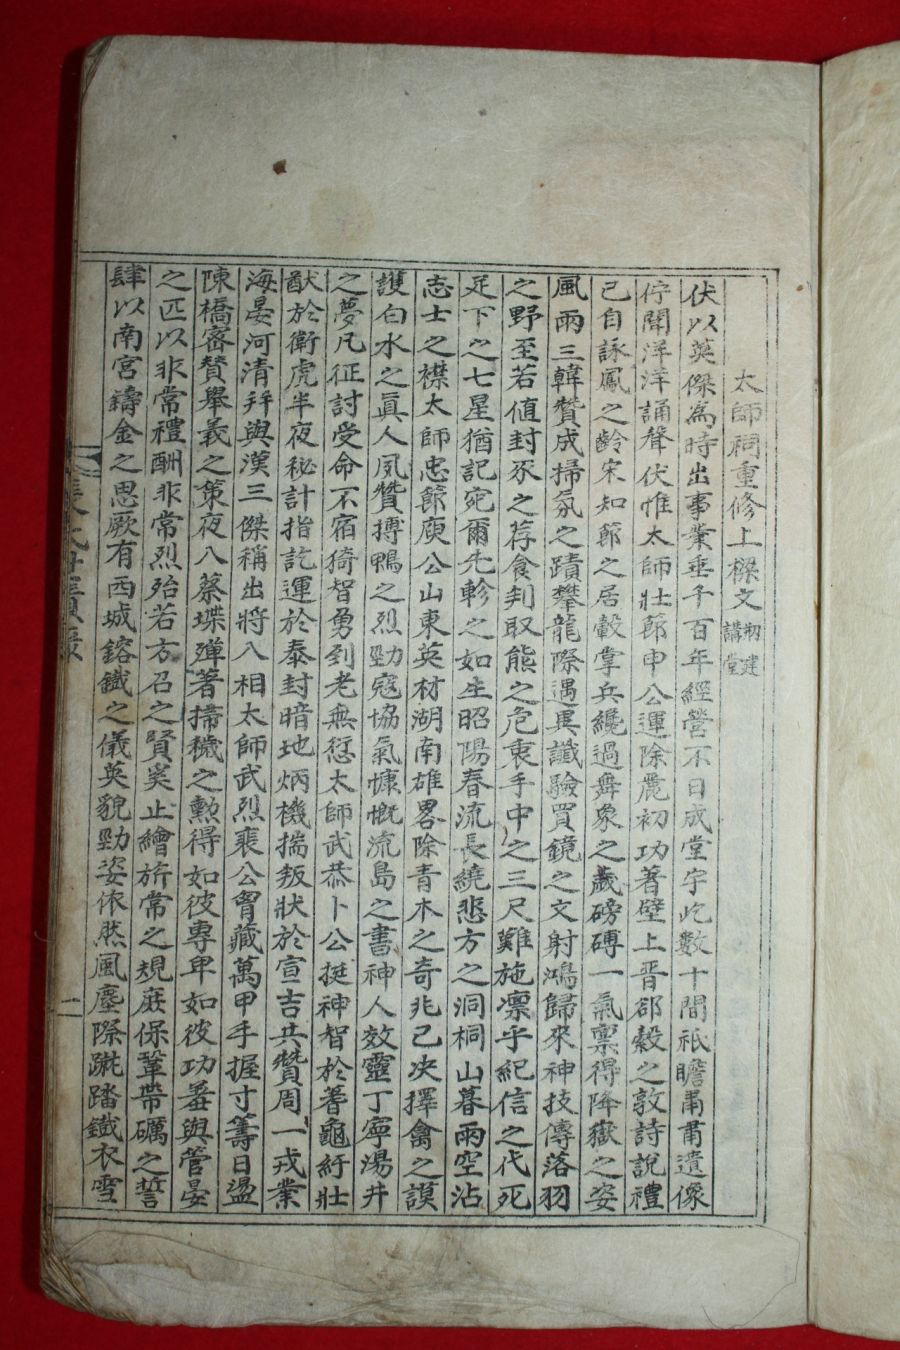 太師祠重修上樑文 初建講堂
伏以英傑為時出事業垂千百年經營不日成堂宇屹數十間祇瞻肅肅遺像
佇聞洋洋誦聲伏惟太師壯節申公運除麗初功著壁上晋郤縠之敦詩說禮
己自詠鳳之齡宋知節之居轂掌兵纔過舞象之歲磅礡一氣禀得降嶽之姿
風雨三韓贊成掃氛之蹟攀龍際遇異讖驗買鏡之文射鴻歸來神技傳落羽
之野至若値封豕之荐食判取熊之危衷手中之三尺難施凛乎紀信之代死
足下之七星猶記宛爾先軫之如生昭陽春流長繞悲方之洞桐山暮雨空沾
志士之襟太師忠節庾公山東英材湖南雄畧除青木之奇兆已决擇禽之謨
護白水之眞人夙贊搏鴨之烈勁寇協氣慷慨流島之書神人效靈丁寧湯井
之夢凡征討受命不宿猗智勇到老無愆太師武恭卜公挺神智於蓍龜紆壯
猷於衛虎半夜秘計指訖運於泰封暗地炳機揣叛狀於宣吉共贊周一戎業
海晏河清幷與漢三傑稱出將入相太師武烈裴公胷藏萬甲手握寸籌日盪
陳橋密贊擧義之策夜入蔡堞殫著掃穢之勳得如彼專卑如彼功羞與管晏
之匹以非常禮酬非常烈殆若方召之賢奚止繪旂常之規庶保鞶帶礪之誓
肆以南宮鑄金之思厥有西城鎔鐵之儀英貌勁姿依然風塵際蹴踏鐵衣雪